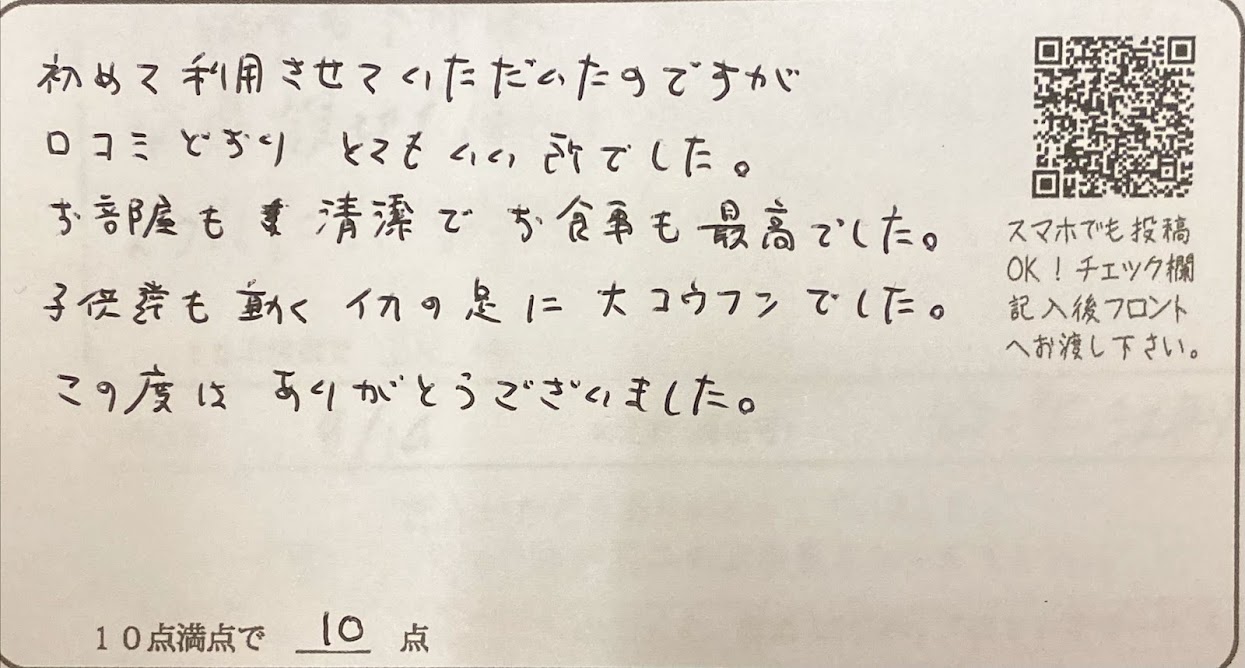 初めて利用させていただいたのですが
口コミどおり とてもいい所でした。
お部屋も 清潔で お食事も最高でした。
子供達も動くイカの足に大コウフンでした。
この度は ありがとうございました。
スマホでも投稿
OK！チェック欄
記入後フロント
へお渡し下さい。
10点満点で 10 点